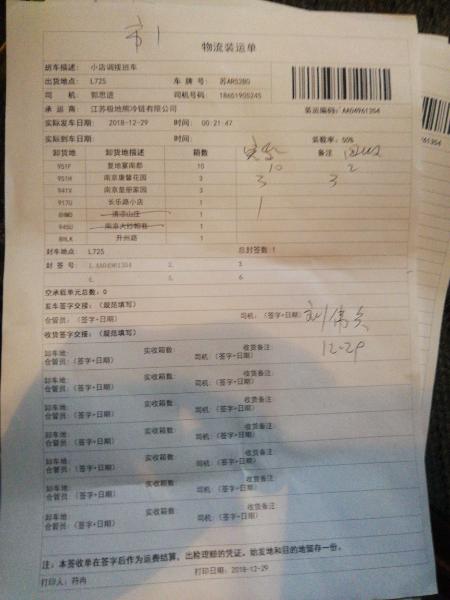 物流装运单
班车描述: 小店调拨班车
出货地点: L725 车 牌 号: 苏AR52B0
司 机: 郭思进 司机号码: 18651905245
承 运 商: 江苏极地熊冷链有限公司 装运编码: AA04961354
实际发车日期: 2018-12-29 时间: 00:21:47
实际到车日期: 时间: 装载率: 50%
卸货地 卸货地描述 箱数 备注
951F 复地宴南都 10 10 2
951H 南京康馨花园 3 3 3
941X 南京皇册家园 3
917U 长乐路小店 1 1
8HM0 清凉山庄 1
945U 南京大纱帽巷 1
8HLK 升州路 1
封车地点: L725 总封签数: 1
封 签 号: 1.AA04961354 2. 3
4. 5. 6
空承载单元总数: 0
发车签字交接: (规范填写)
仓管员: (签字+日期) 司机: (签字+日期)
收货签字交接: (规范填写) 12-29
卸车地: 实收箱数: 收货备注:
仓管员: (签字+日期) 司机: (签字+日期)
卸车地: 实收箱数: 收货备注:
仓管员: (签字+日期) 司机: (签字+日期)
卸车地: 实收箱数: 收货备注:
仓管员: (签字+日期) 司机: (签字+日期)
卸车地: 实收箱数: 收货备注:
仓管员: (签字+日期) 司机: (签字+日期)
卸车地: 实收箱数: 收货备注:
仓管员: (签字+日期) 司机: (签字+日期)
卸车地: 实收箱数: 收货备注:
仓管员: (签字+日期) 司机: (签字+日期)
注: 本签收单在签字后作为运费结算, 出险理赔的凭证, 始发地和目的地留存一份。
打印人: 符冉 打印日期: 2018-12-29